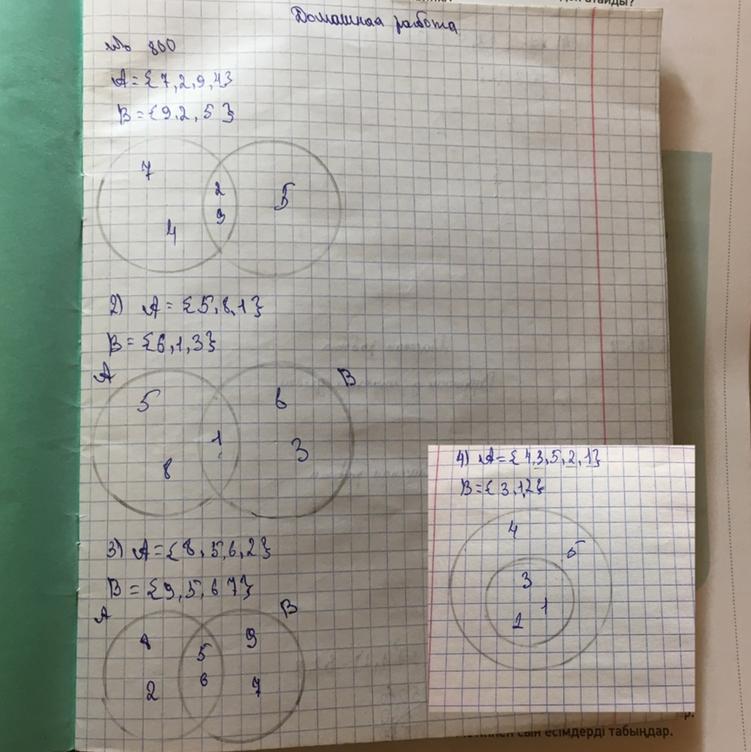 Домашная работа
№ 800
A = {7,2,9,4}
B = {9.2,5}
7
2
5
9
4
2) A = {5,8,1}
B = {6,1,3}
A
B
5
6
1
3
8
3) A = {8,5,6,2}
B = {9,5,6 7}
A
B
8
9
5
6
2
7
4) A = {4,3,5,2,1}
B = {3,1,2}
4
5
3
1
2
сын есімдерді табыңдар.